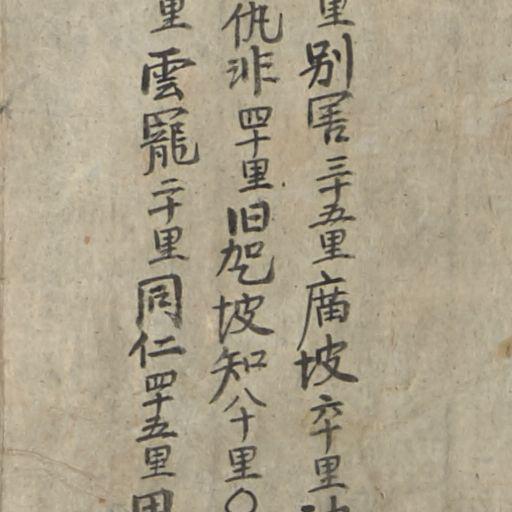 里别害三十五里庿坡六十里
仇非四十里旧乫坡知八十里○
里雲寵二十里同仁四十五里